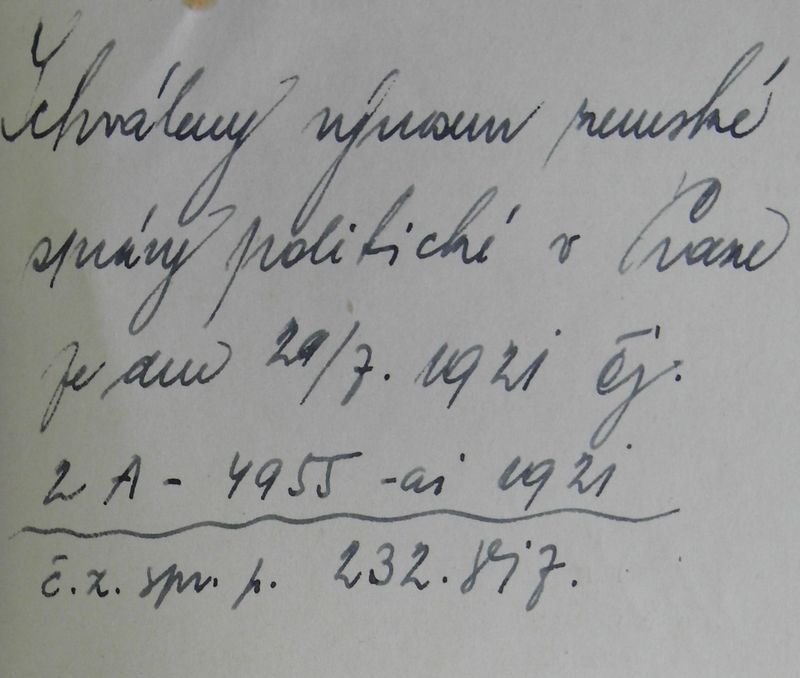 Schválený výnosem zemské
správy politické v Praze
ze dne 29/7. 1921 čj.
2 A - 4955 -ai 1921
č. z. spr. p. 232.